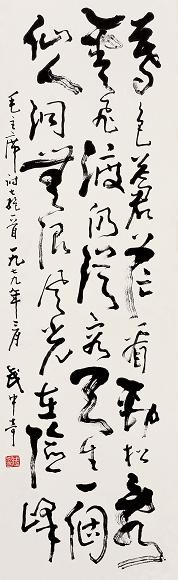 暮色苍茫看劲松乱
云飞渡仍从容天生一个
仙人洞无限风光在险峰
毛主席诗七绝一首一九七九年二月
武中奇